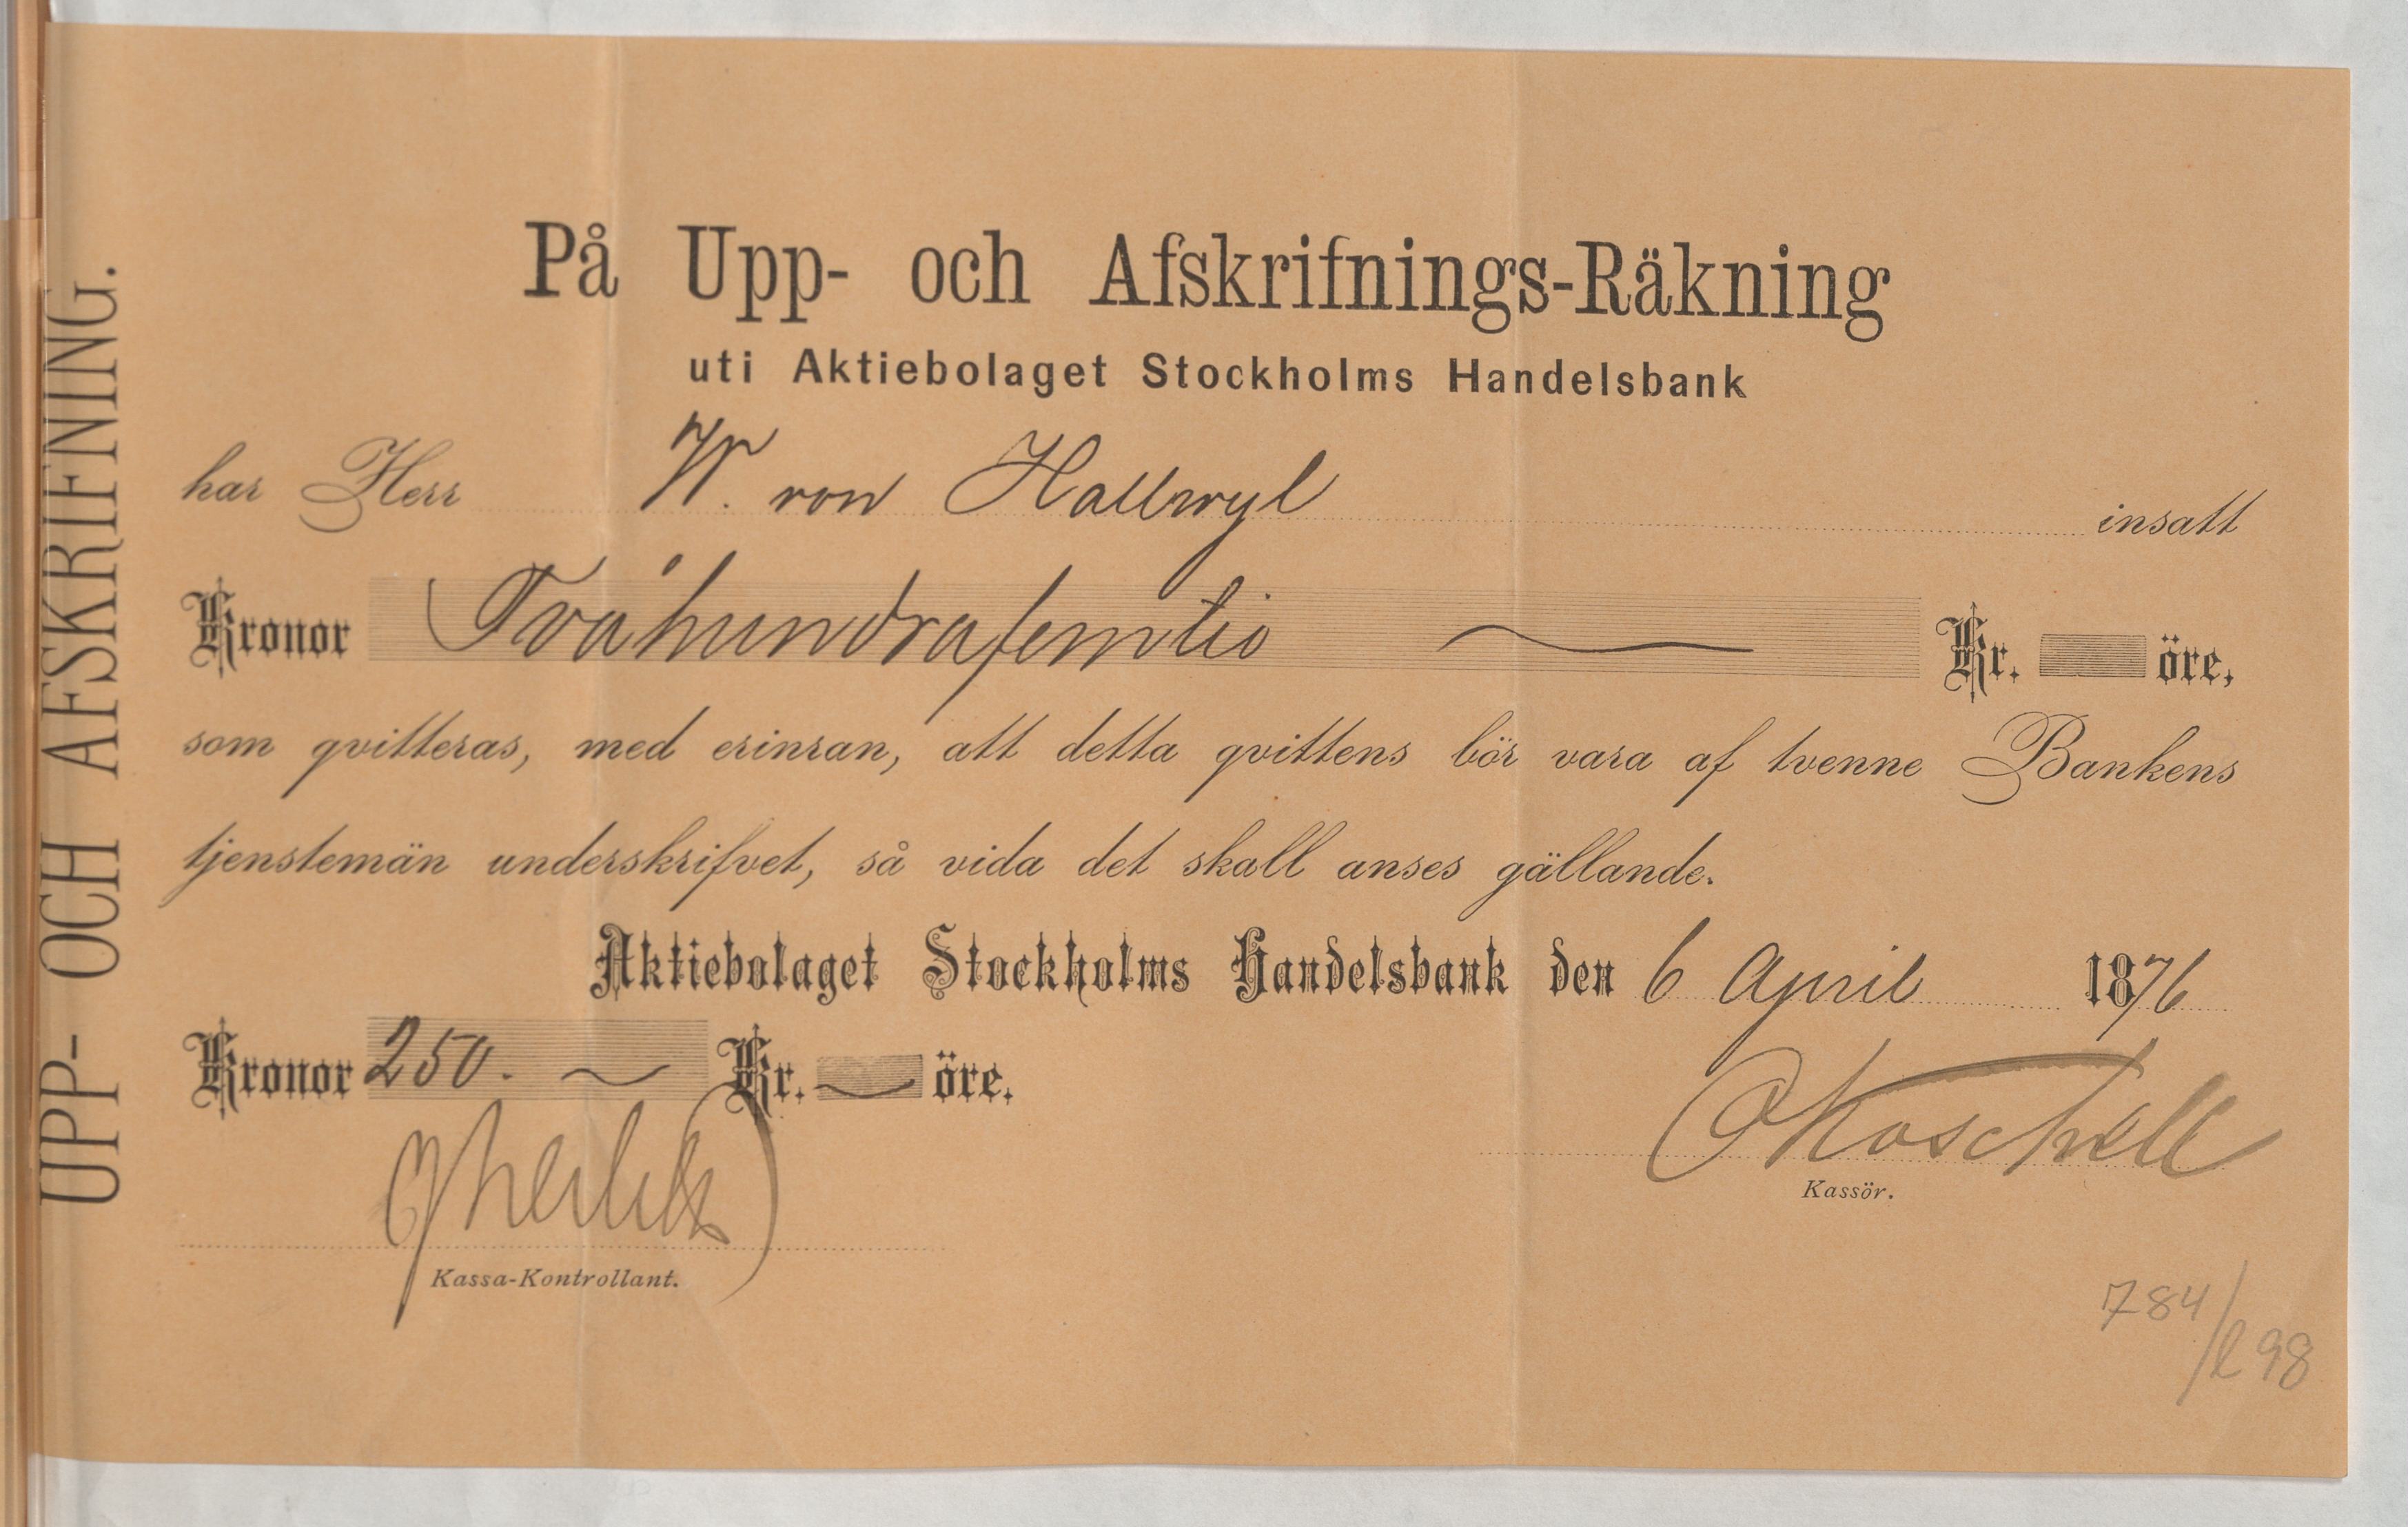 UPP- OCH AFSKRIFNING.
På Upp- och Afskrifnings-Räkning
uti Aktiebolaget Stockholms Handelsbank
har Herr W. von Hallwyl insatt
Kronor Tvåhundrafemtio Kr. öre,
som qvitteras, med erinran, att detta qvittens bör vara af tvenne Bankens
tjenstemän underskrifvet, så vida det skall anses gällande.
Aktiebolaget Stockholms Handelsbank den 6 April 1876
Kronor 250. Kr. öre.
Kassör.
Kassa-Kontrollant.
784/
98